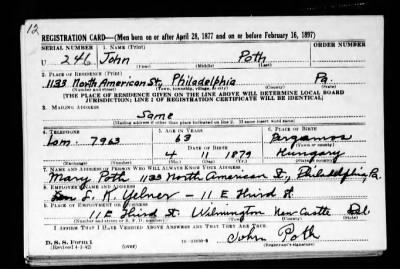 12
REGISTRATION CARD—(Men born on or after April 28, 1877 and on or before February 16, 1897)
SERIAL NUMBER 1. NAME (Print) ORDER NUMBER
U 246 John Poth
(First) (Middle) (Last)
2. PLACE OF RESIDENCE (Print)
1133 North American St, Philadelphia Pa.
(Number and street) (Town, township, village, or city) (County) (State)
[THE PLACE OF RESIDENCE GIVEN ON THE LINE ABOVE WILL DETERMINE LOCAL BOARD
JURISDICTION; LINE 2 OF REGISTRATION CERTIFICATE WILL BE IDENTICAL]
3. MAILING ADDRESS
Same
[Mailing address if other than place indicated on line 2. If same insert word same]
4. TELEPHONE 5. AGE IN YEARS 6. PLACE OF BIRTH
Lom. 7963 63 Pergamos
DATE OF BIRTH
4 11 1879 Hungary
(Exchange) (Number) (Mo.) (Day) (Yr.) (State or country)
7. NAME AND ADDRESS OF PERSON WHO WILL ALWAYS KNOW YOUR ADDRESS
Mary Poth 1133 North American St, Philadelphia, Pa.
8. EMPLOYER'S NAME AND ADDRESS
L. K. Yelner - 11 E Third St.
9. PLACE OF EMPLOYMENT OR BUSINESS
11 E Third St. Wilmington New Castle Del.
(Number and street or R. F. D. number) (Town) (County) (State)
I AFFIRM THAT I HAVE VERIFIED ABOVE ANSWERS AND THAT THEY ARE TRUE.
D. S. S. Form 1
(Revised 4-1-42) (over) John Poth
(Registrant's signature)